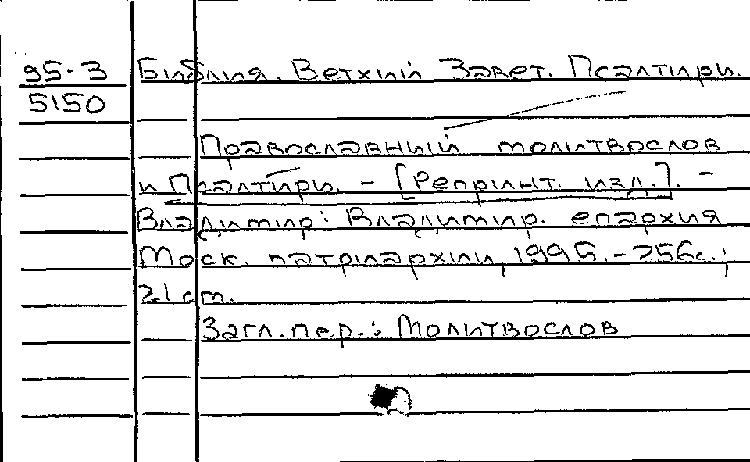 95-3 Библия. Ветхий Завет. Псалтири.
5150
Православный молитвослов
и Псалтири. - [Репринт. изд.]. -
Владимир: Владимир. епархия
Моск. патриархии, 1995. - 256с.;
21 cm.
Загл. пер.: Молитвослов